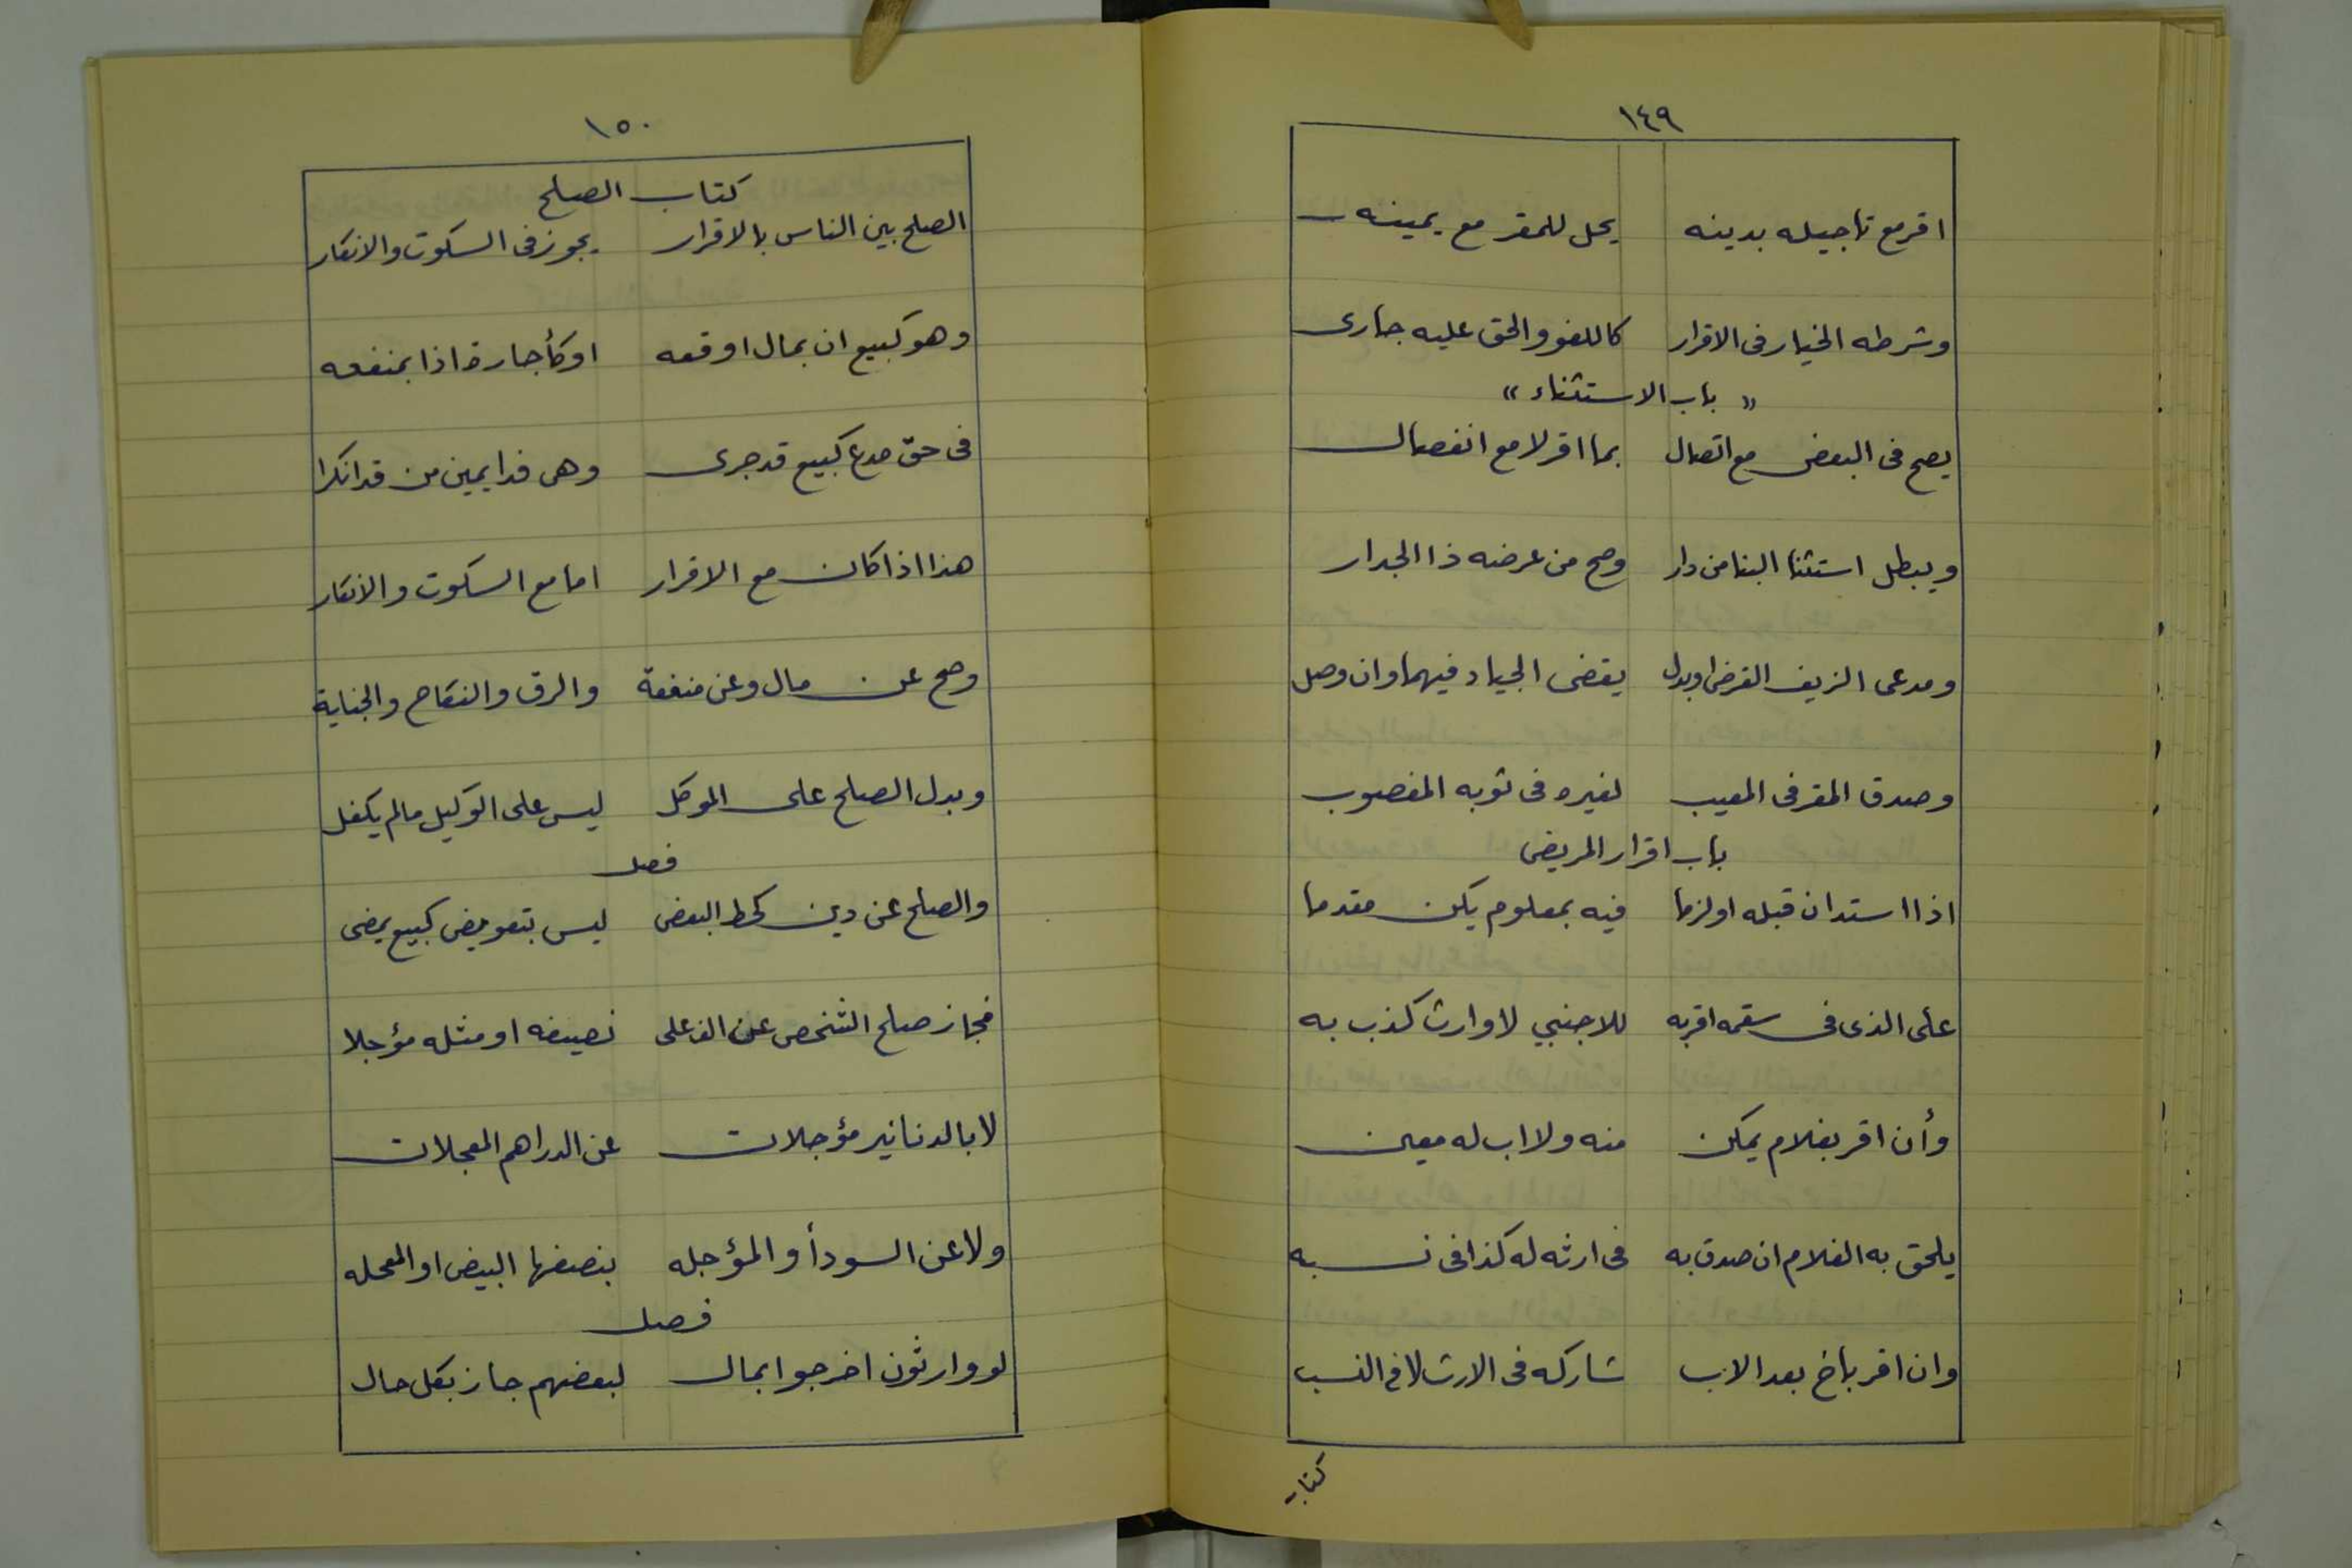 ١٤٩
اقر مع تاجيله بدينه يحل للمقر مع يمينه
وشرطه الخيار فى الاقرار كاللغو والحق عليه جارى
« باب الاستثناء »
يصح فى البعض مع اتصال بما اقر لا مع انفصال
ويبطل استثنا البنا من دار وصح من عرضه ذا الجدار
ومدعى الزيف القرض او بدل يقضى الجياد فيهما وان وصل
وصدق المقر فى المعيب لغيره فى ثوبه المغصوب
باب اقرار المريض
اذا استدان قبله او لزما فيه بمعلوم يكن مقدما
على الذى فى سقمه اقر به للاجنبي لا وارث كذب به
وأن اقر بغلام يمكن منه ولا اب له معين
يلحق به الغلام ان صدق به فى ارثه له كذا فى نسبه
وان اقر بأخ بعد الاب شاركه فى الارث لا فى النسب
كتاب
١٥٠
كتاب الصلح
الصلح بين الناس بالاقرار يجوز فى السكوت والانكار
وهو كبيع ان بمال اوقعه او كأجارة اذا بمنفعه
فى حق مدع كبيع قد جرى وهى فدا يمين من قد انكرا
هذا اذا كان مع الاقرار اما مع السكوت والانكار
وصح عن مال وعن منفعة والرق والنكاح والجناية
وبدل الصلح على الموكل ليس على الوكيل مالم يكفل
فصل
والصلح عن دين كحط البعض ليس بتعويض كبيع يمضى
فجاز صلح الشخص عن الف على نصيفه او مثله مؤجلا
لا بالدنانير مؤجلات عن الدراهم المعجلات
ولا عن السودأ والمؤجله بنصفها البيض او المعجله
فصل
لو وارثون اخرجوا بمال لبعضهم جاز بكل حال